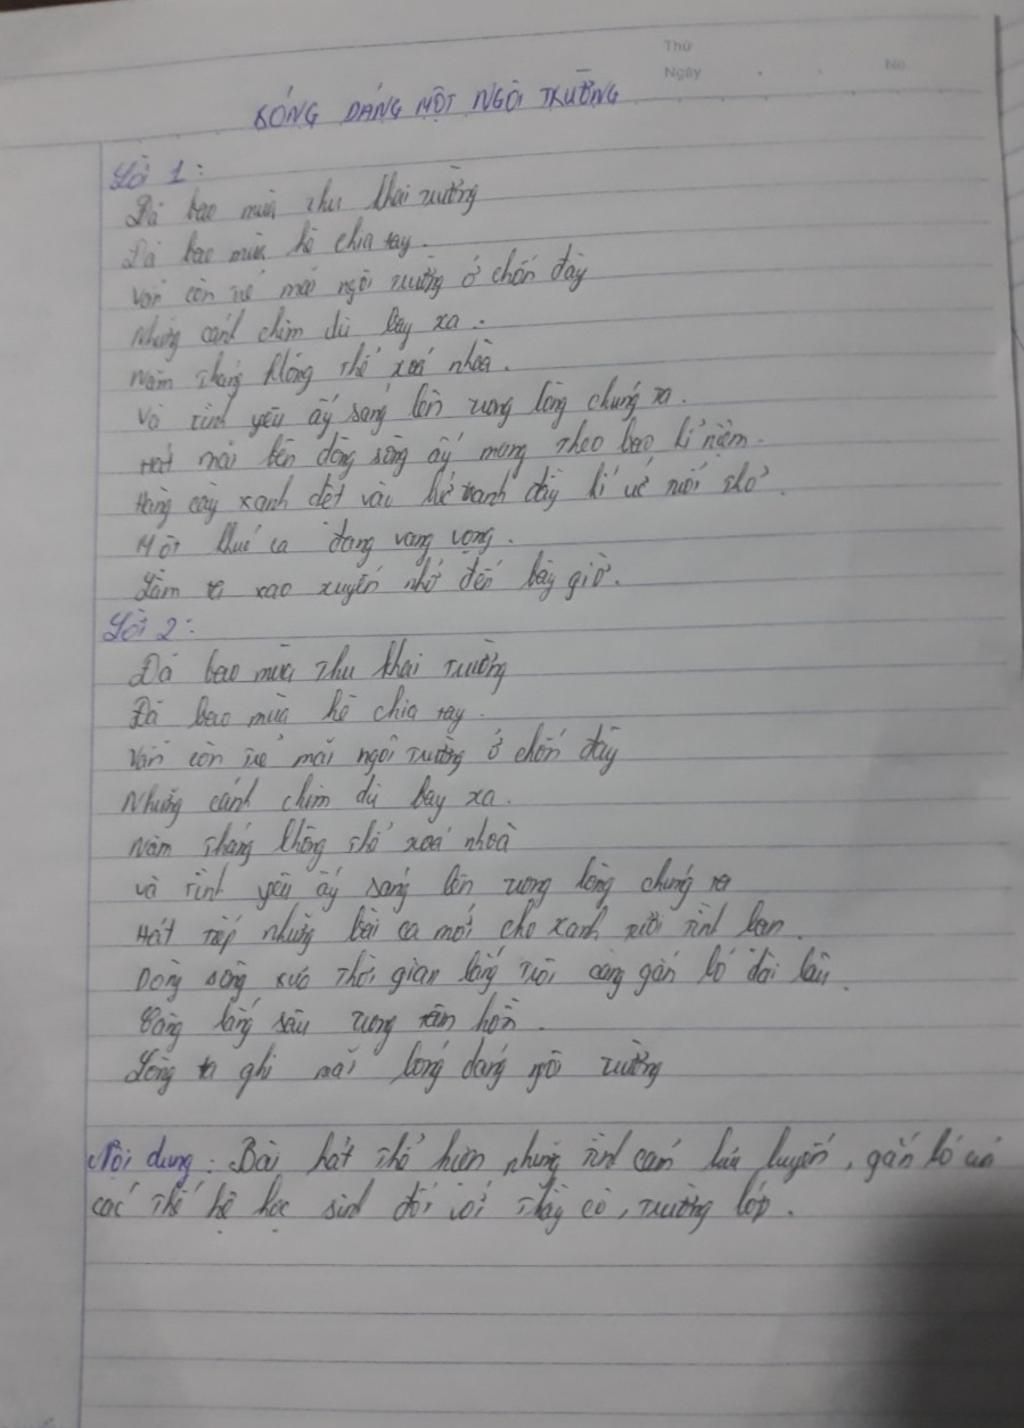 Thứ
Ngày . . No
BÓNG DÁNG MỘT NGÔI TRƯỜNG
Lời 1:
Đã bao mùa thu khai trường
Đã bao mùa hè chia tay.
Vẫn còn trẻ mãi ngôi trường ở chốn đây
Những cánh chim dù bay xa.
Năm tháng không thể xoá nhoà.
Và tình yêu ấy sáng lên trong lòng chúng ta.
Hát mãi bên dòng sông ấy mang theo bao kỉ niệm.
Hàng cây xanh dệt vào bức tranh đầy kí ức tuổi thơ.
Một khúc ca đang vang vọng.
Làm ta xao xuyến nhớ đến bây giờ.
Lời 2:
Đã bao mùa thu khai trường
Đã bao mùa hè chia tay.
Vẫn còn trẻ mãi ngôi trường ở chốn đây
Những cánh chim dù bay xa.
Năm tháng không thể xoá nhoà
và tình yêu ấy sáng lên trong lòng chúng ta
Hát tiếp những bài ca mới cho xanh mãi tình bạn.
Dòng sông xưa thời gian lắng trôi càng gắn bó dài lâu.
Càng lắng sâu trong tâm hồn.
Lòng ta ghi mãi bóng dáng ngôi trường
Nội dung: Bài hát thể hiện những tình cảm lưu luyến, gắn bó của
các thế hệ học sinh đối với thầy cô, trường lớp.